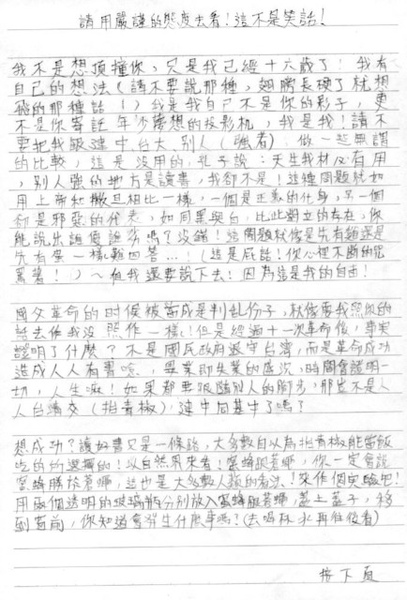 請用嚴謹的態度去看!這不是笑話!
我不是想頂撞你,只是我已經十六歲了!我有
自己的想法(請不要說那種,翅膀長硬了就想
飛的那種話!)我是我自己不是你的影子,更
不是你寄託年少夢想的投影机,我是我!請不
要把我跟建中.台大.別人(強者)做一些無謂
的比較,這是沒用的,孔子說:天生我材必有用
,別人強的地方是讀書,我卻不是!這種問題就如
用上帝和撒旦相比一樣,一個是正義的化身,另一個
卻是邪惡的代表,如同黑與白,比此對立的存在,你
能說出誰優誰劣嗎?沒錯!這問題就像是先有雞還是
先有蛋一樣難回答...!(這是屁話!你心裡不斷的咒
罵著!)~但我還要說下去!因為這是我的自由!
國父革命的時候被當成是判亂份子,就像要我照你的
話去做我沒照作一樣!但是經過十一次革命後,事實
證明了什麼?不是國民政府退守台灣,而是革命成功
造成人人有書唸,畢業即失業的盛況,時間會證明一
切,人生嘛!如果都要跟隨別人的腳步,那豈不是人
人台清交(拍青椒),建中同基中了嗎?
想成功?讀好書又是一條路,大多數自以為拍青椒能當飯
吃的的選擇啦!以自然界來看!蜜蜂跟蒼蠅,你一定會說
蜜蜂勝於蒼蠅,這也是大多數人類的看法!來作個實驗吧!
用兩個透明的玻璃瓶分別放入蜜蜂跟蒼蠅,蓋上蓋子,移
到窗前,你知道會發生什麼事嗎!(去喝杯水再往後看)
接下頁